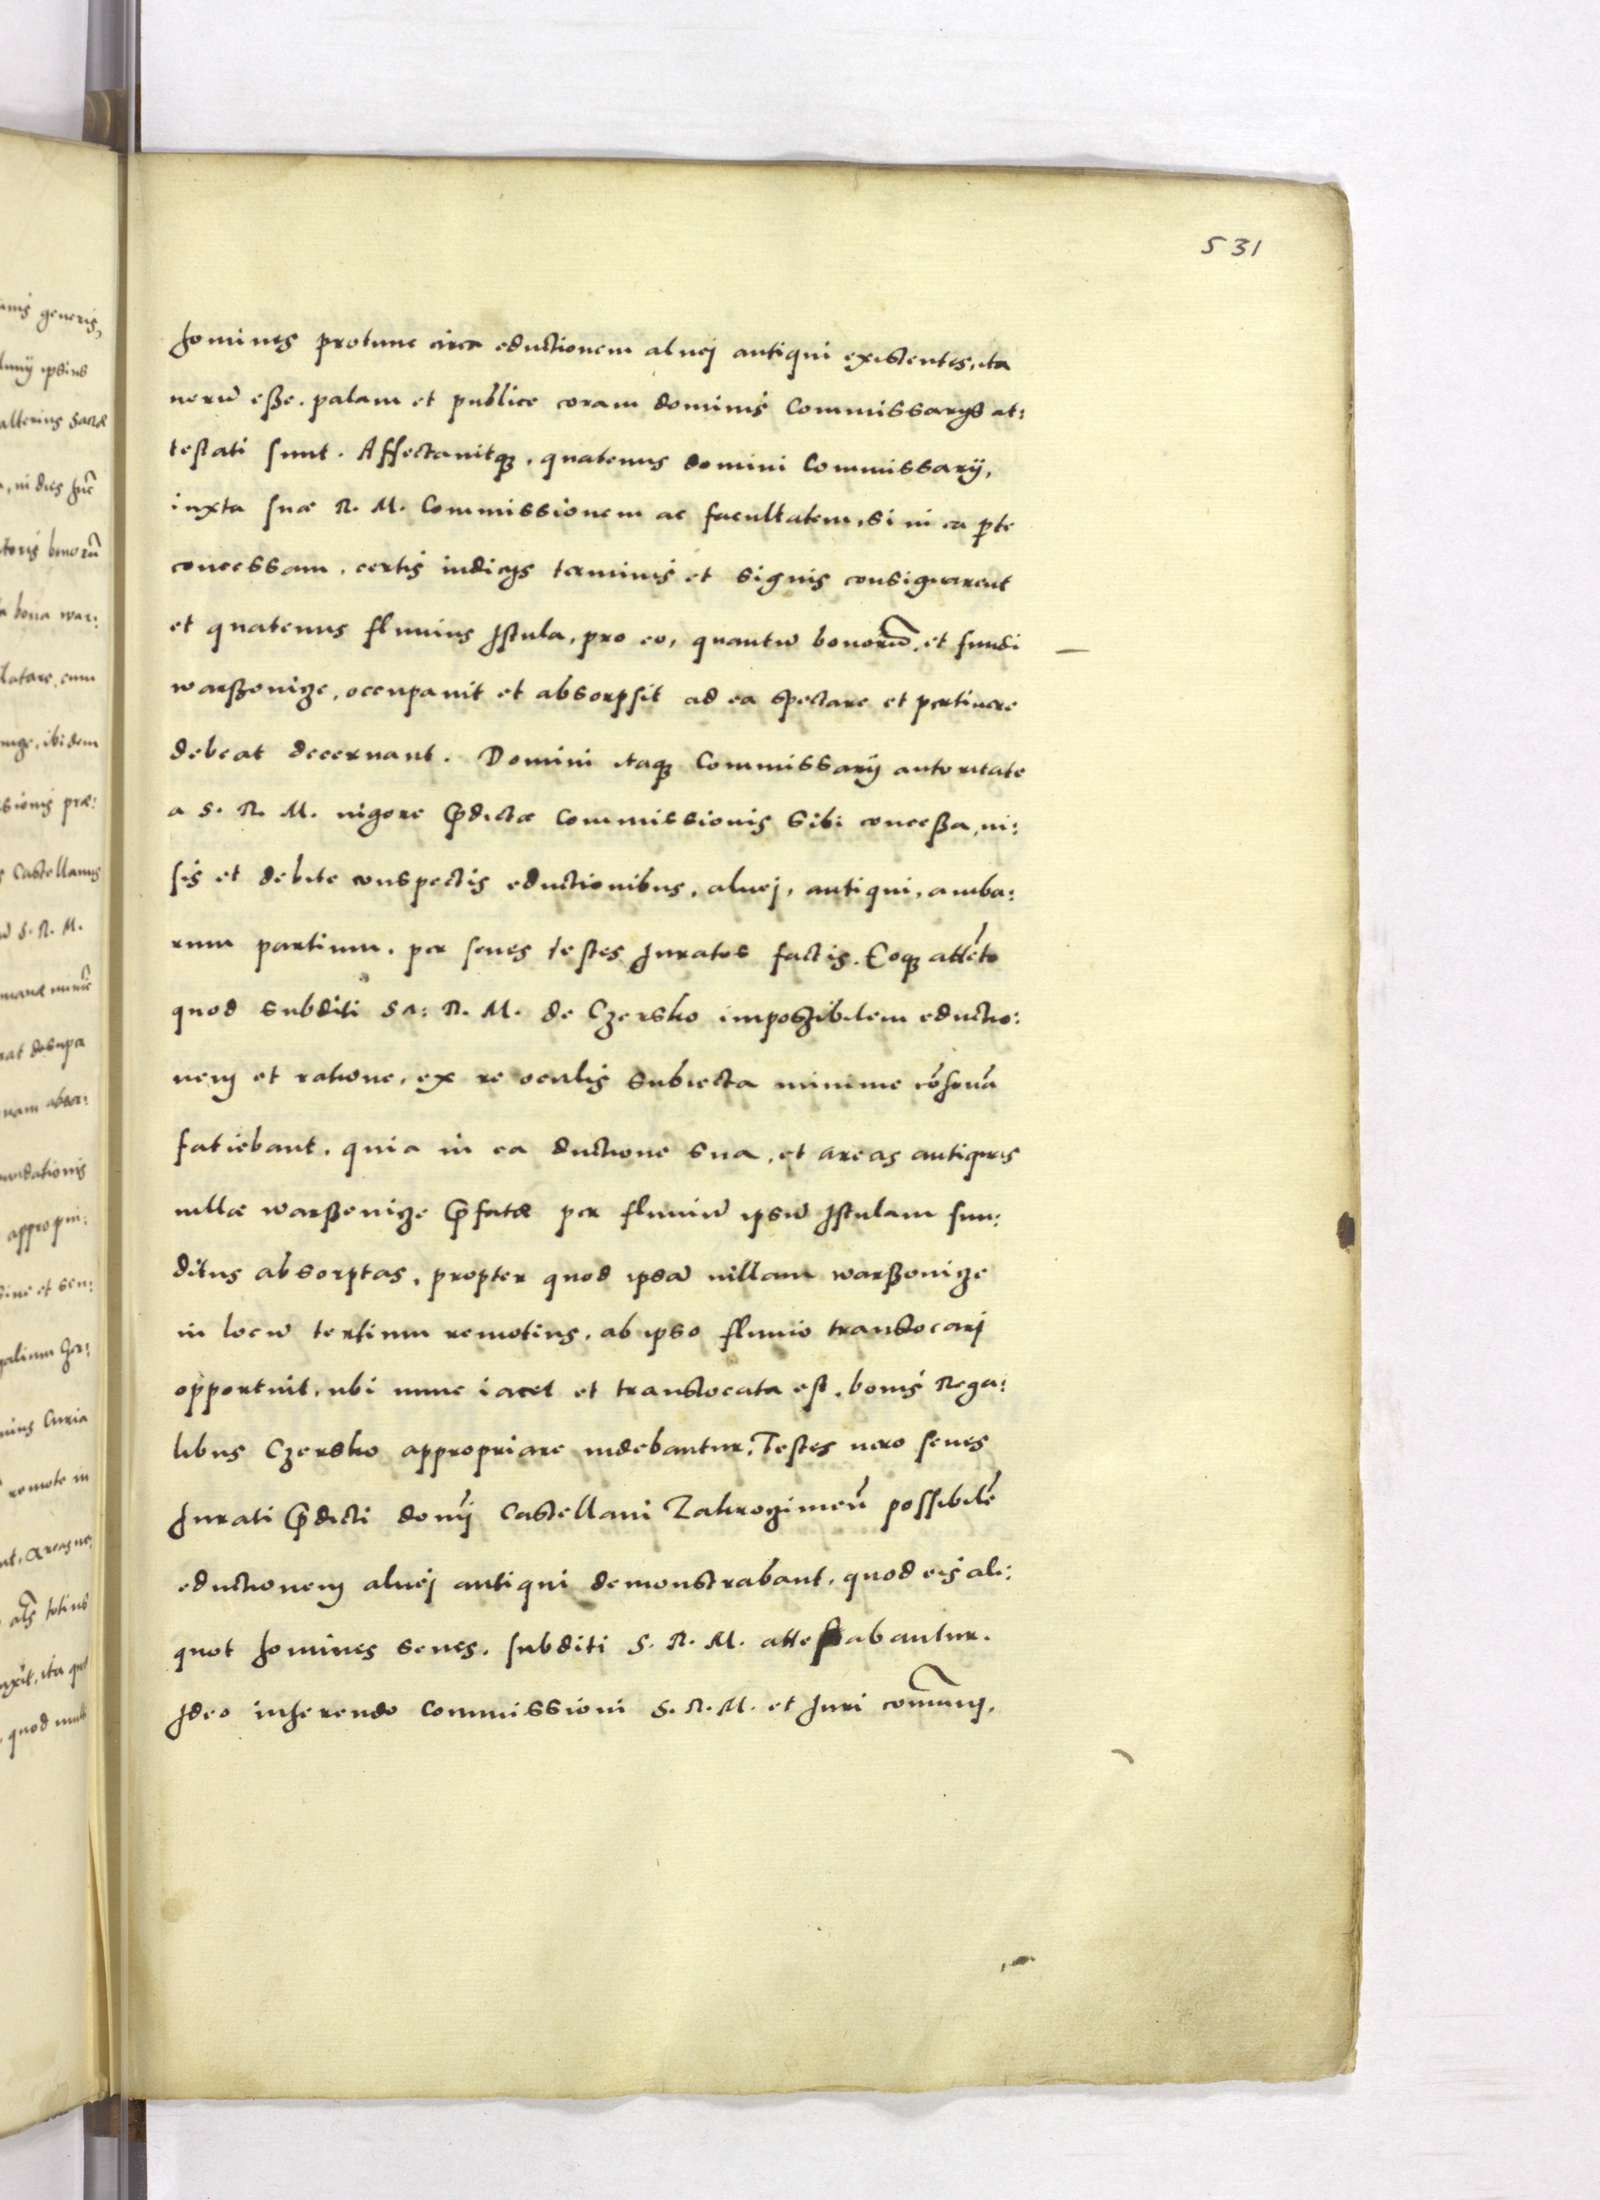 531
homines protunc circa eductionem aluej antiqui existentes, ita
uerū eße. palam et publice coram dominis Commissarijs at:
testati sunt. Affectauitqꝫ, quatenus domini Commissarij,
iuxta suæ R. M. Commissionem ac facultatem, si in ea pte
concessam, certis indicijs terminis et signis consignarent
et quatenus fluuius Istula, pro eo, quantū bonorū, et fundi
warßenicze, occupauit et absorpsit ad ea spectare et pertinere
debeat decernant. Domini itaqꝫ Commissarij autoritate
a S. R. M. uigore p̄dictæ Commissionis sibi conceßa, ui:
sis et debite conspectis eductionibus, aluej, antiqui, amba:
rum partium, per senes testes Iuratos factis. Eoqꝫ attēto
quod subditi Sa: R. M. de Czersko impoßibilem eductio:
nem et ratione, ex re oculis subiecta minime cōsonā
fatiebant, quia in ea ductione sua, et areas antiquas
uillæ warßenicze p̄fatæ per fluuiū ipsū Istulam fun:
ditus absorptas, propter quod ipsā uillam warßenicze
in locū tertium remotius, ab ipso fluuio translocarj
opportuit, ubi nunc iacet et translocata est, bonis Rega:
libus Czersko appropriare uidebantur, Testes uero senes
Iurati p̄dicti domīj Castellani Zakrozimeñ possibilē
eductionem aluej antiqui demonstrabant, quod eis ali:
quot homines senes, subditi S. R. M. attestabantur.
Ideo inherendo Commissioni S. R. M. et Iuri com̄uni,